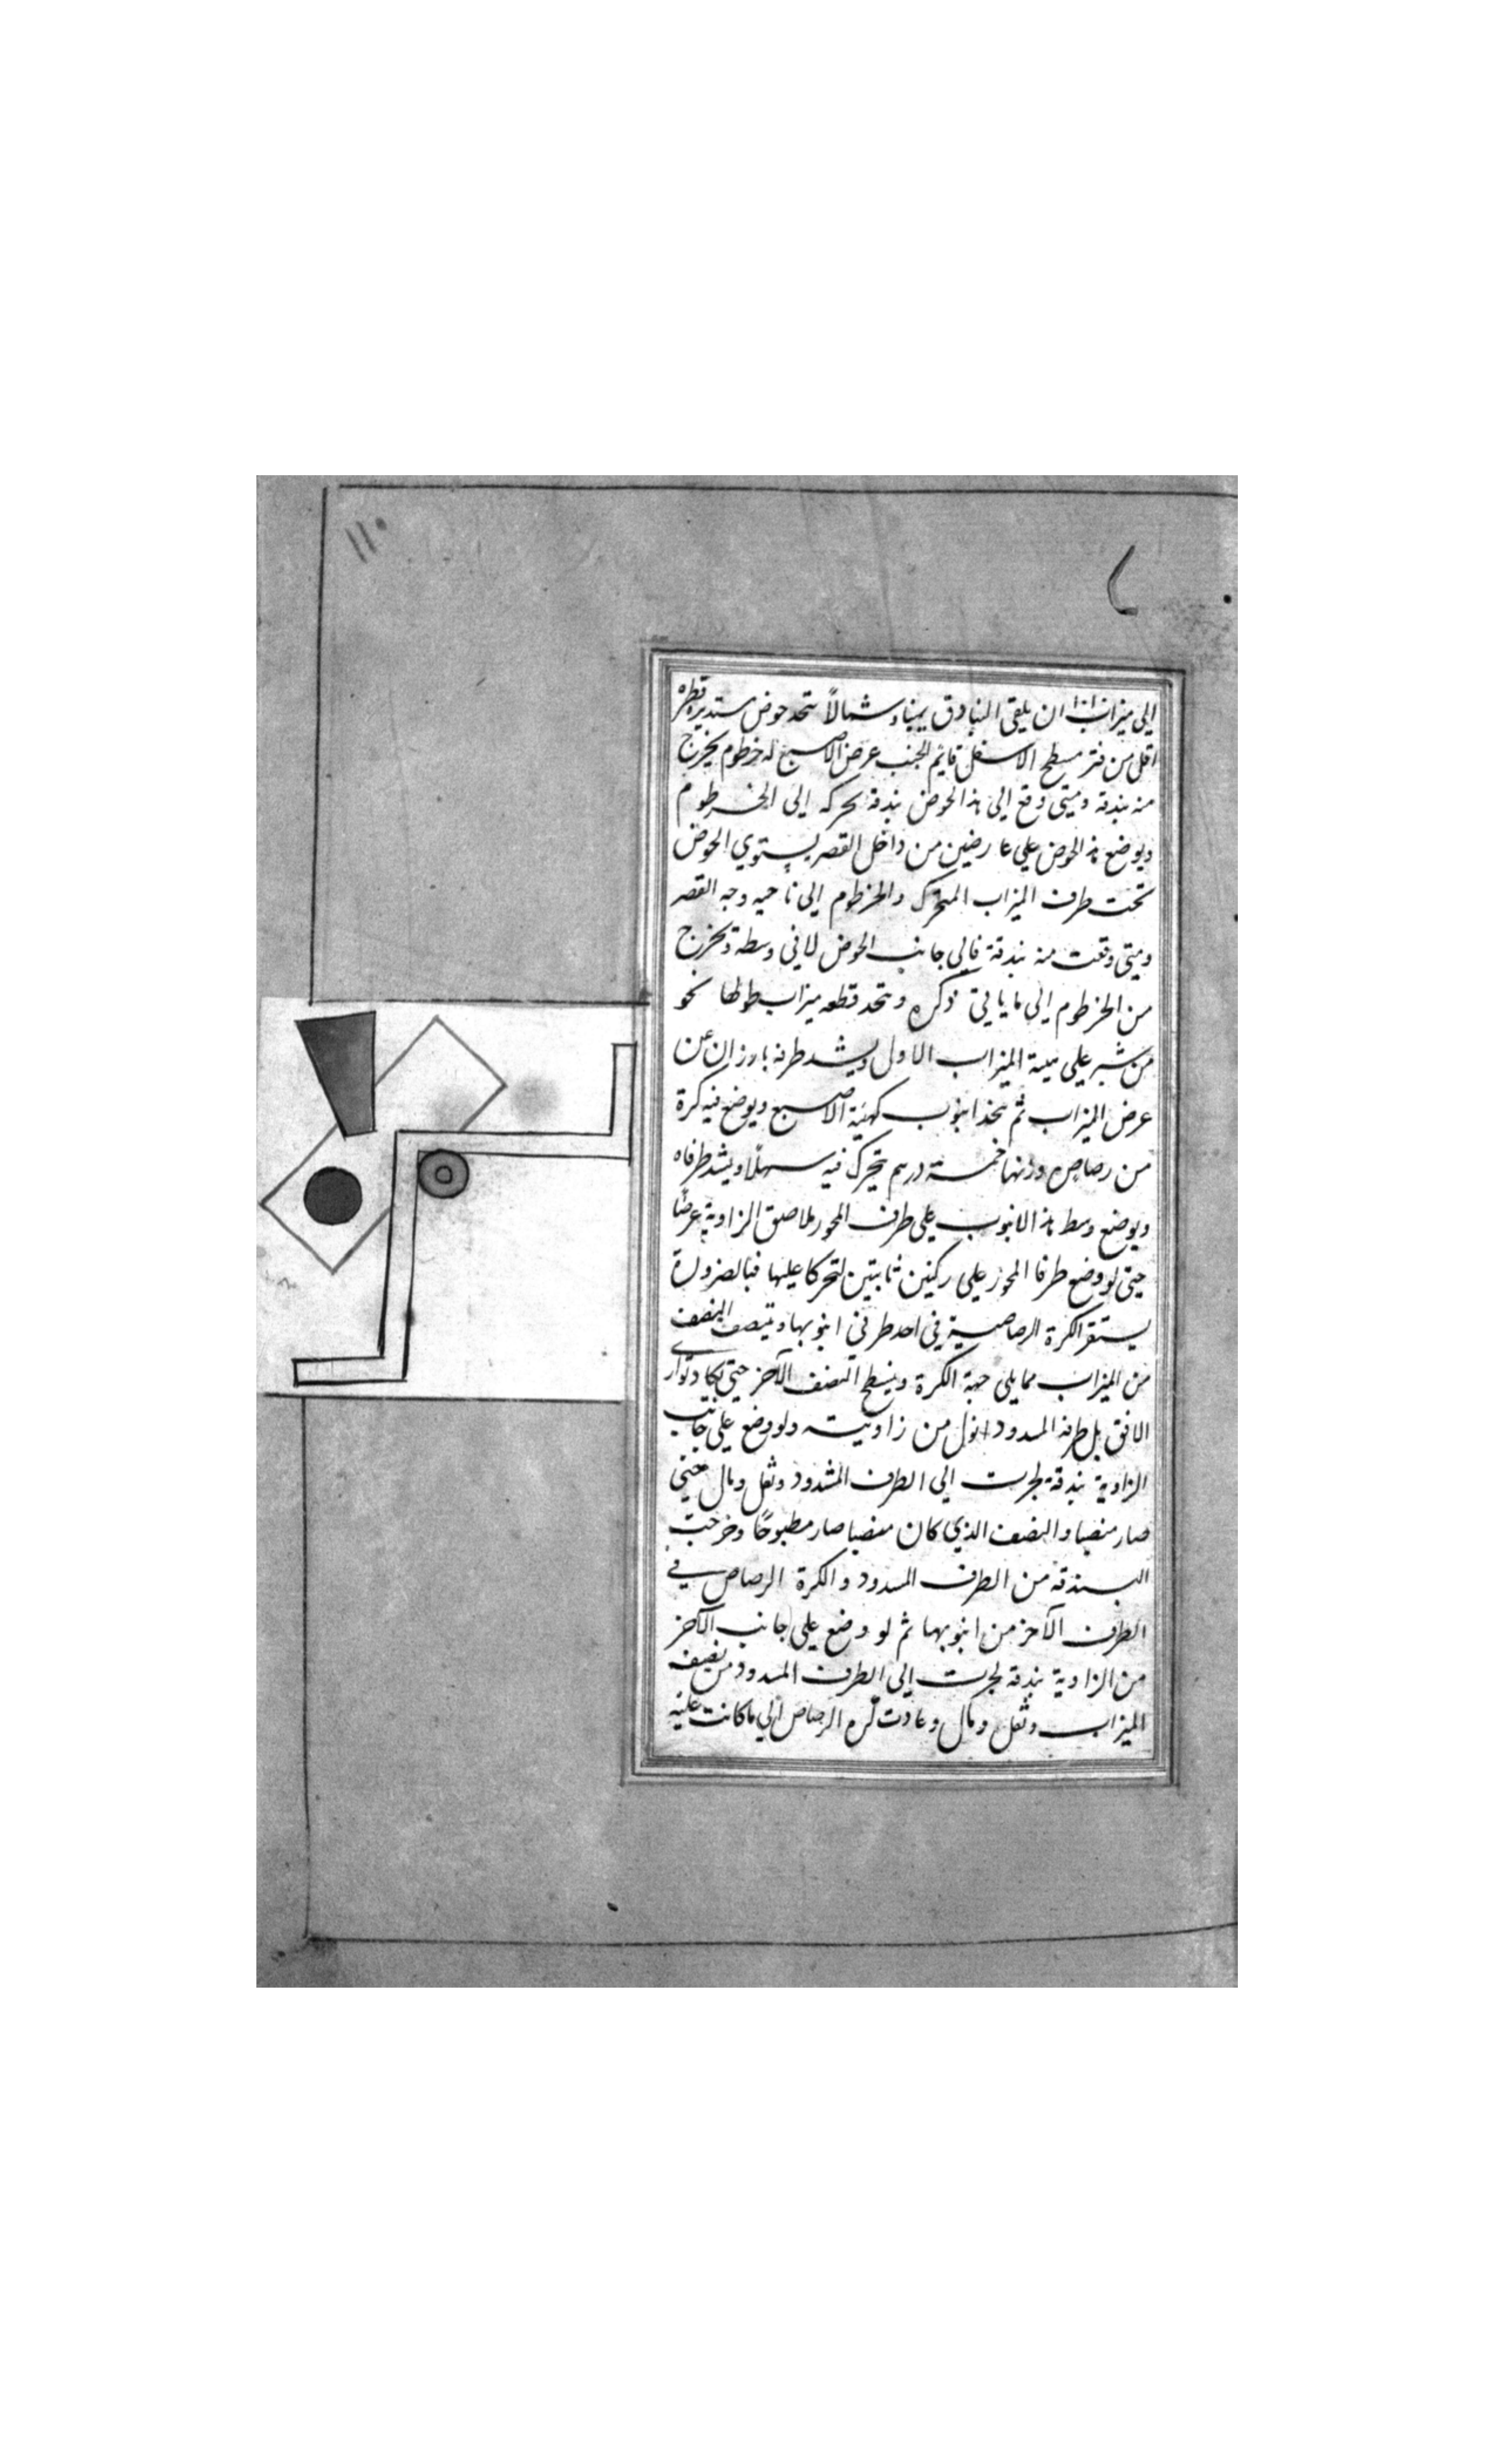 ١١٠
الى ميزاب اذا ان يلقى البنادق يمينا وشمالاً يتخذ حوض مستدير قطره
اقل من فتر مسطح الاسفل قايم الجنب عرض الاصبع له خرطوم يخرج
منه بندقة ومتى وقع الى هذا الحوض بندقة تحركه الى الخرطوم
ويوضع هذا الحوض على عارضين من داخل القصر يستوي الحوض
تحت طرف الميزاب المتحرك والخرطوم الى ناحيه وجه القصر
ومتى وقعت منه بندقة فالى جانب الحوض لا في وسطه وتخرج
من الخرطوم الى ما ياتي ذكره ويتخذ قطعه ميزاب طولها نحو
من شبر على هيئة الميزاب الاول ويشد طرفه بارزان عن
عرض الميزاب ثم يتخذ انبوب كهيئة الاصبع ويوضع فيه كرة
من رصاص وزنها خمسة درهم تتحرك فيه سهلًا ويشد طرفاه
ويوضع وسط هذا الانبوب على طرف المحور ملاصق الزاوية عرضًا
حتى لو وضع طرفا المحور على ركنين ثابتين لتحركا عليها فبالضرورة
يستقر الكرة الرصاصية في احد طرفي انبوبها وينتصب النصف
من الميزاب مما يلي جهة الكرة وينبطح النصف الآخر حتى يكاد يوازي
الافق بل طرفه المسدود انزل من زاويته ولو وضع على جانب
الزاوية بندقة لجرت الى الطرف المشدود وثقل ومال حتى
صار منتصبا والنصف الذي كان منتصبا صار مطبوحًا وخرجت
البندقه من الطرف المسدود والكرة الرصاص في
الطرف الآخر من انبوبها ثم لو وضع على جانب الآخر
من الزاوية بندقة لجرت الى الطرف المسدود من نصف
الميزاب وثقل ومال وعادت كره الرصاص الى ما كانت عليه